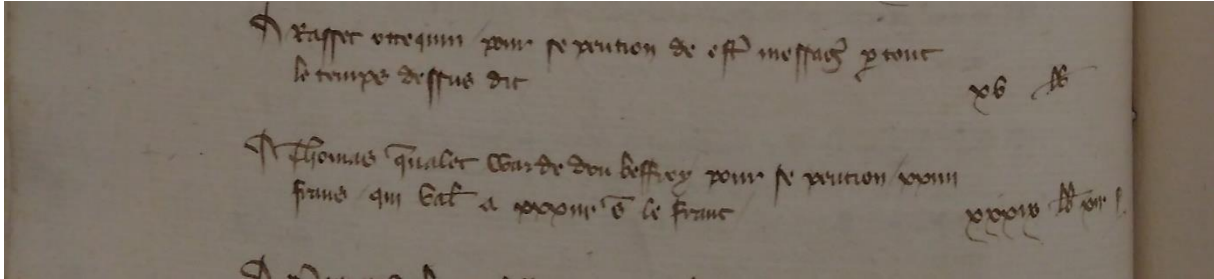 A Rasset ottequin pour se pention de estre messag̃ p tout
le temps dessus dit xv lb
A Thomas q̃valet warde dou beffrey pour se pention xxiiii
frans qui val̃ a xxxiii s̃ le franc xxxix lb xii s.